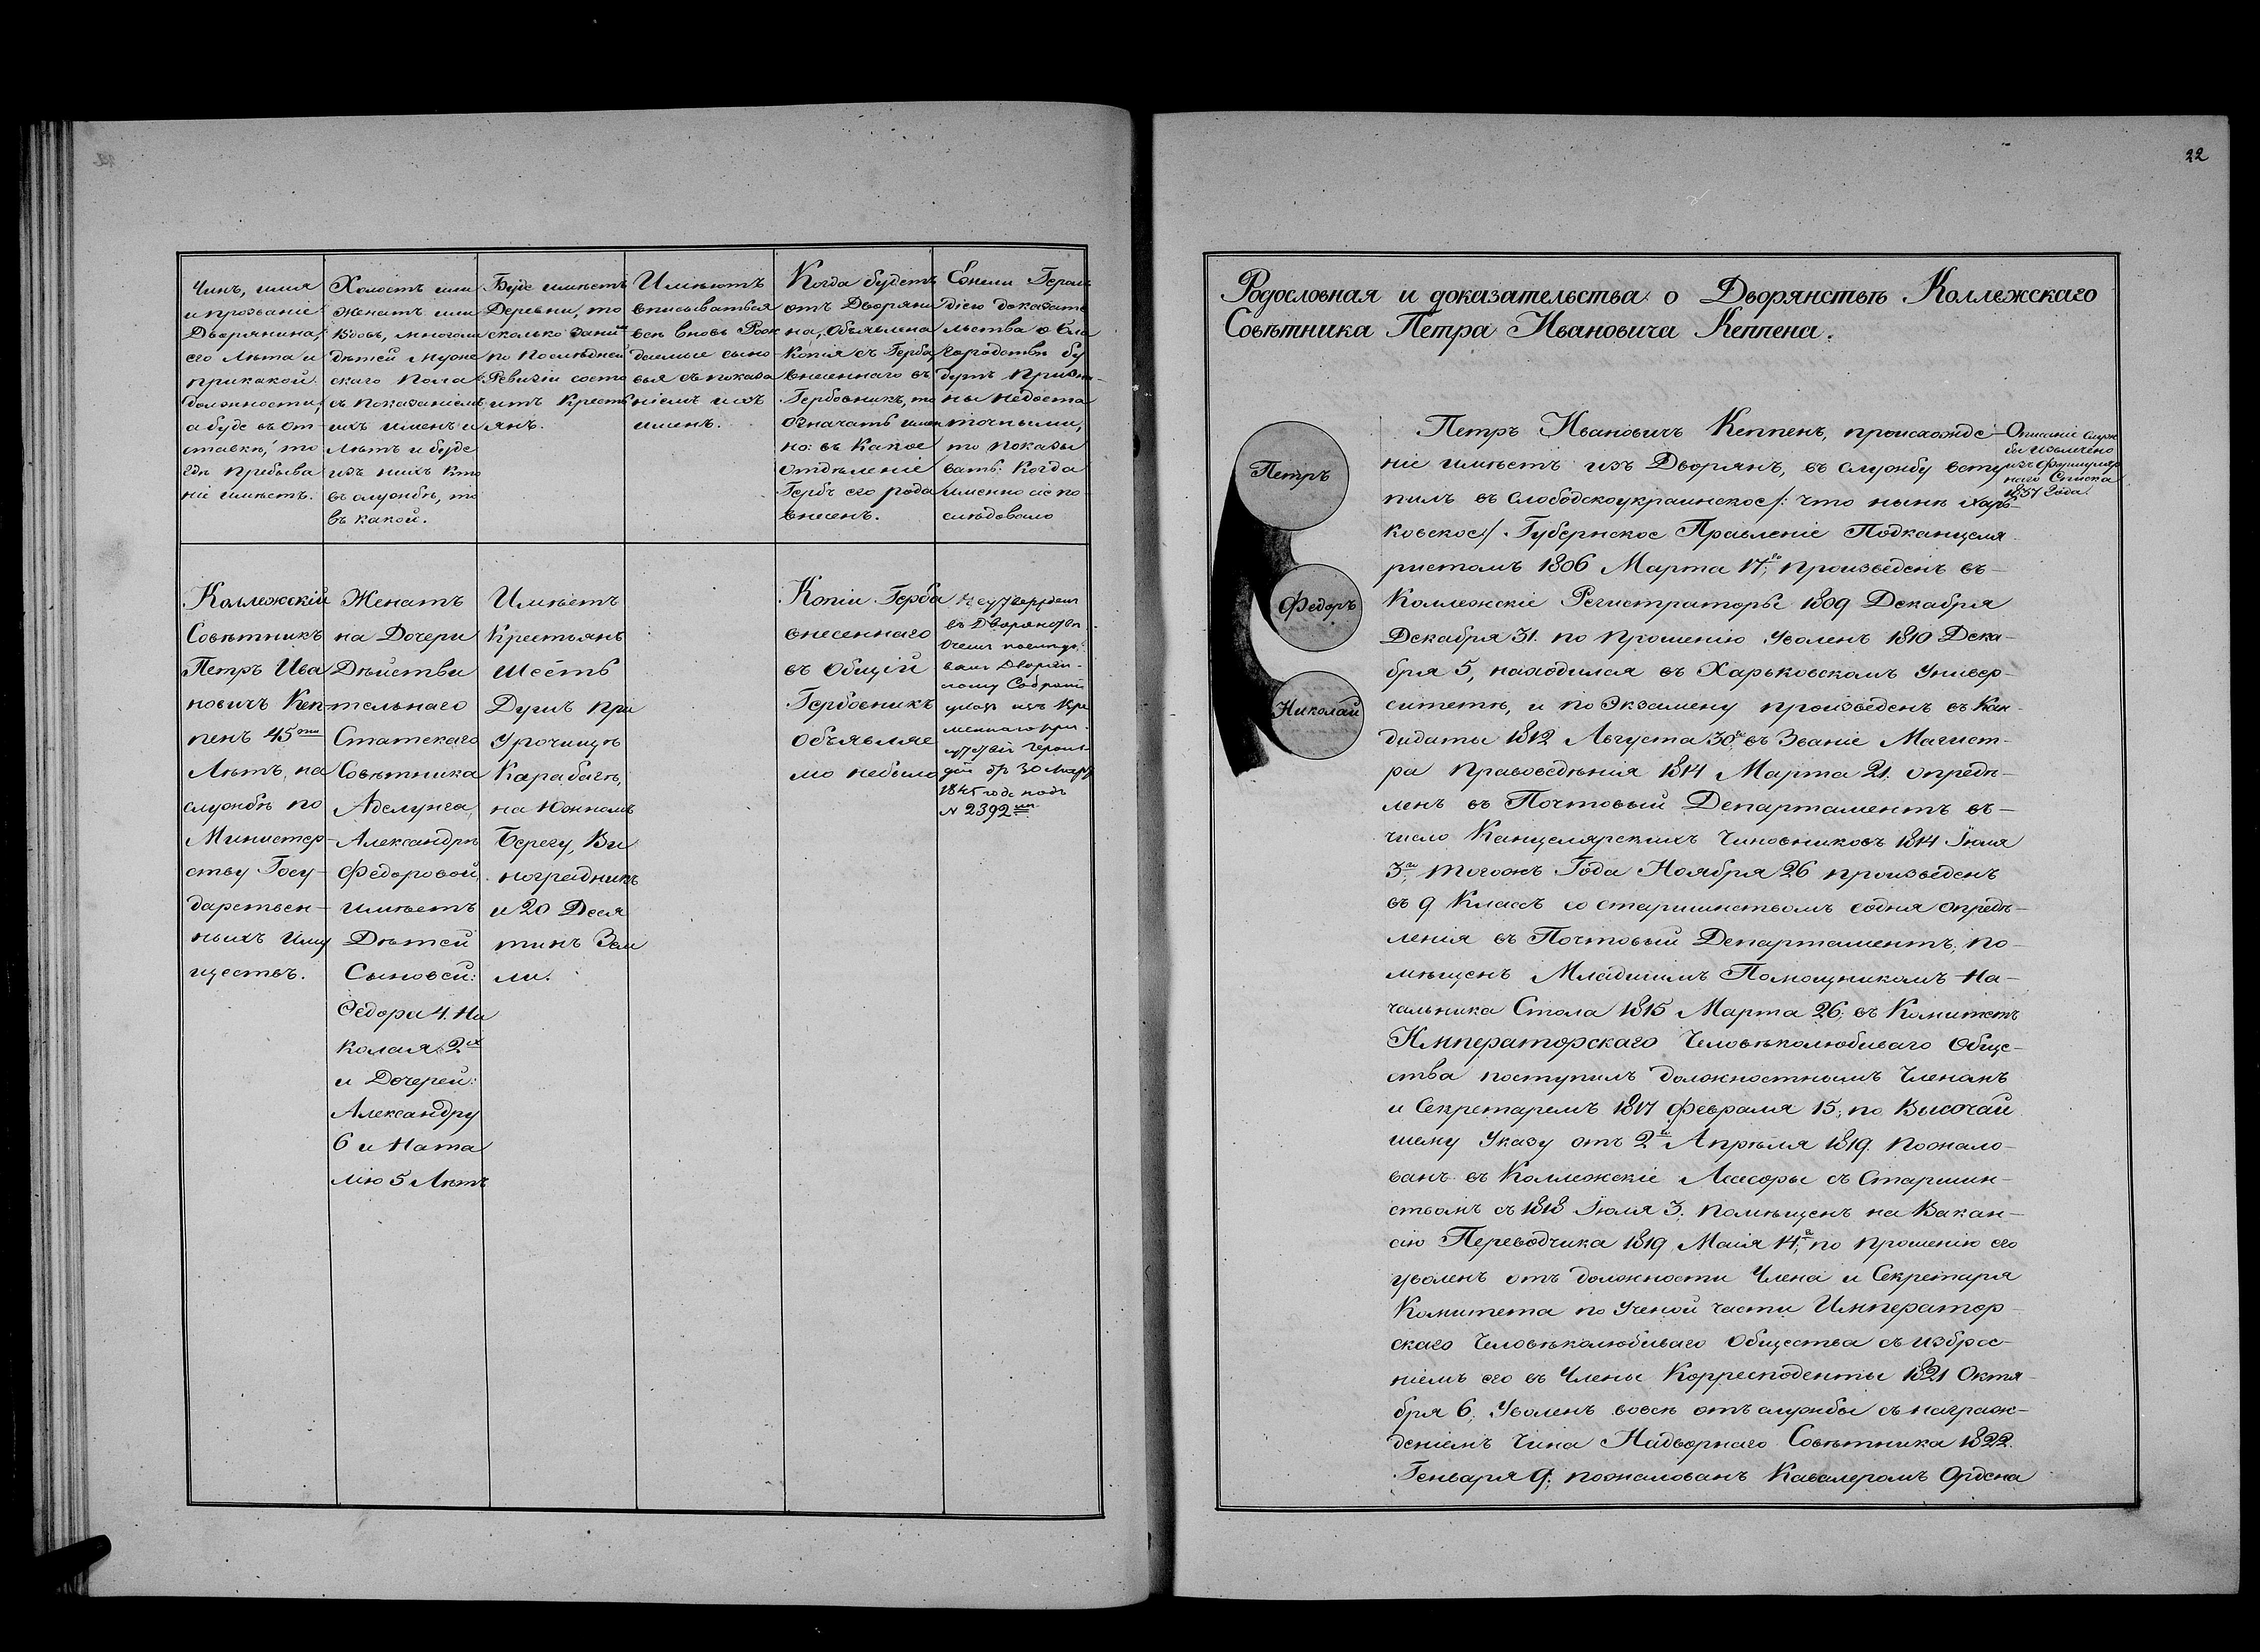 Чинъ, имя
и прозваніе
Дворянина,
его Лѣта и
при какой
должности,
а буде въ от-
ставкѣ, то
гдѣ пребыва
ніе имѣетъ.
Холостъ или
женатъ или
Вдовъ, много ли
дѣтей муже
скаго пола
съ показаніемъ
ихъ именъ и
Лѣтъ и буде
изъ нихъ кто
въ службѣ, то
въ какой.
Буде имѣетъ
Деревни, то
сколько за ним
по Послѣдней
Ревизіи состо
итъ Кресть
янъ.
Имѣютъ
вписываться
всѣ вновь Рож
даемые сыно
вья съ показа
ніемъ ихъ
именъ.
Когда будетъ
отъ Дворяни
на, Объявлена
Копія съ Герба,
внесеннаго въ
Гербовникъ, то
означать имен
но: въ Какое
отдѣленіе
Гербъ его рода
внесенъ.
Ежели Героль
діею доказате
льства о бла
городствѣ бу
дутъ Призна-
ны недоста
точными,
то показы
вать: Когда
Именно сіе по
слѣдовало
Коллежскій
Совѣтникъ
Петръ Ива
новичъ Кеп-
пенъ 45 ти
Лѣтъ, на
службѣ по
Министер-
ству Госу-
дарствен-
ныхъ Иму
ществъ.
Женатъ
на Дочери
Дѣйстви
тельнаго
Статскаго
Совѣтника
Аделунга,
Александрѣ
Федоровой,
имѣетъ
Дѣтей
Сыновей:
Федора 4. Ни
колая 2 хъ
и Дочерей:
Александру
6 и Ната
лію 5 Лѣтъ
Имѣетъ
Крестьянъ
Шесть
Душъ при
Урочищѣ
Карабагъ,
на Южномъ
Берегу, Ви
ноградникъ
и 20 Деся
тинъ Зем
ли.
Копіи Герба
внесеннаго
въ Общій
Гербовникъ
Объявляе
мо небыло
Неутвержденъ
въ Дворянствѣ
О чемъ послѣдо
валъ Дворян-
скому Собранію
указъ изъ Вре
меннаго при-
сутствія Героль-
діи отъ 30 Марта
1845 года подъ
N 2392 мъ
22
Родословная и доказательства о Дворянствѣ Коллежскаго
Совѣтника Петра Ивановича Кеппена.
Петръ
Федоръ
Николай
Петръ Ивановичъ Кеппенъ, происхожде-
ніе имѣетъ изъ Дворянъ, въ службу всту
пилъ въ Слободскоукраинское /: что нынѣ Харь-
ковское:/ Губернское Правленіе Подканцеля
ристомъ 1806 Марта 17 го, произведенъ въ-
Коллежскіе Регистраторы 1809 Декабря
Декабря 31. по прошенію Уволенъ 1810 Дека-
бря 5, находился въ Харьковскомъ Универ-
ситетѣ, и по Экзамену произведенъ въ Кан-
дидаты 1812 Августа 30, въ Званіе Магист-
ра Правовѣдѣнія 1814 Марта 21. опредѣ-
ленъ въ Почтовый Департаментъ въ-
число Канцелярскихъ Чиновниковъ 1814 Іюля
3, тогожъ Года Ноября 26 произведенъ
въ 9 Классъ со старшинствомъ со дня опредѣ-
ленія въ Почтовый Департаментъ, по-
мѣщенъ Младшимъ Помощникомъ На-
чальника Стола 1815 Марта 26; въ Комитетъ
Императорскаго Человѣколюбиваго Обще-
ства поступилъ должностнымъ Членомъ
и Секретаремъ 1817 Февраля 15; по Высочай
шему Указу отъ 2 Апрѣля 1819. Пожало-
ванъ въ Коллежскіе Ассесоры съ Старшин-
ствомъ съ 1818 Іюля 3. Помѣщенъ на Вакан-
сію Переводчика 1819 Маія 14, по прошенію его
уволенъ отъ должности Члена и Секретаря
Комитета по Ученой части Император
скаго Человѣколюбиваго Общества съ избра-
ніемъ его въ Члены Корресподенты 1821 Октя-
бря 6; Уволенъ вовсе отъ службы съ награж-
деніемъ Чина Надворнаго Совѣтника 1822.
Генваря 9; пожалованъ Кавалеромъ Ордена
Описаніе служ
бы извлечено
изъ формуляр
наго Списка
1837 Года.